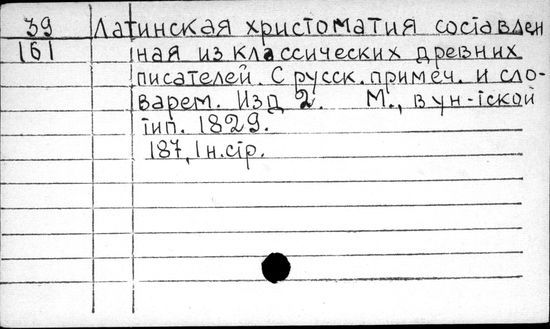 39 Латинская христоматия составлен
161 ная из классических древних
писателей. С русск. примеч. и сло-
варем. Изд 2. М., в ун-тской
тип. 1829.
187, 1н.стр.